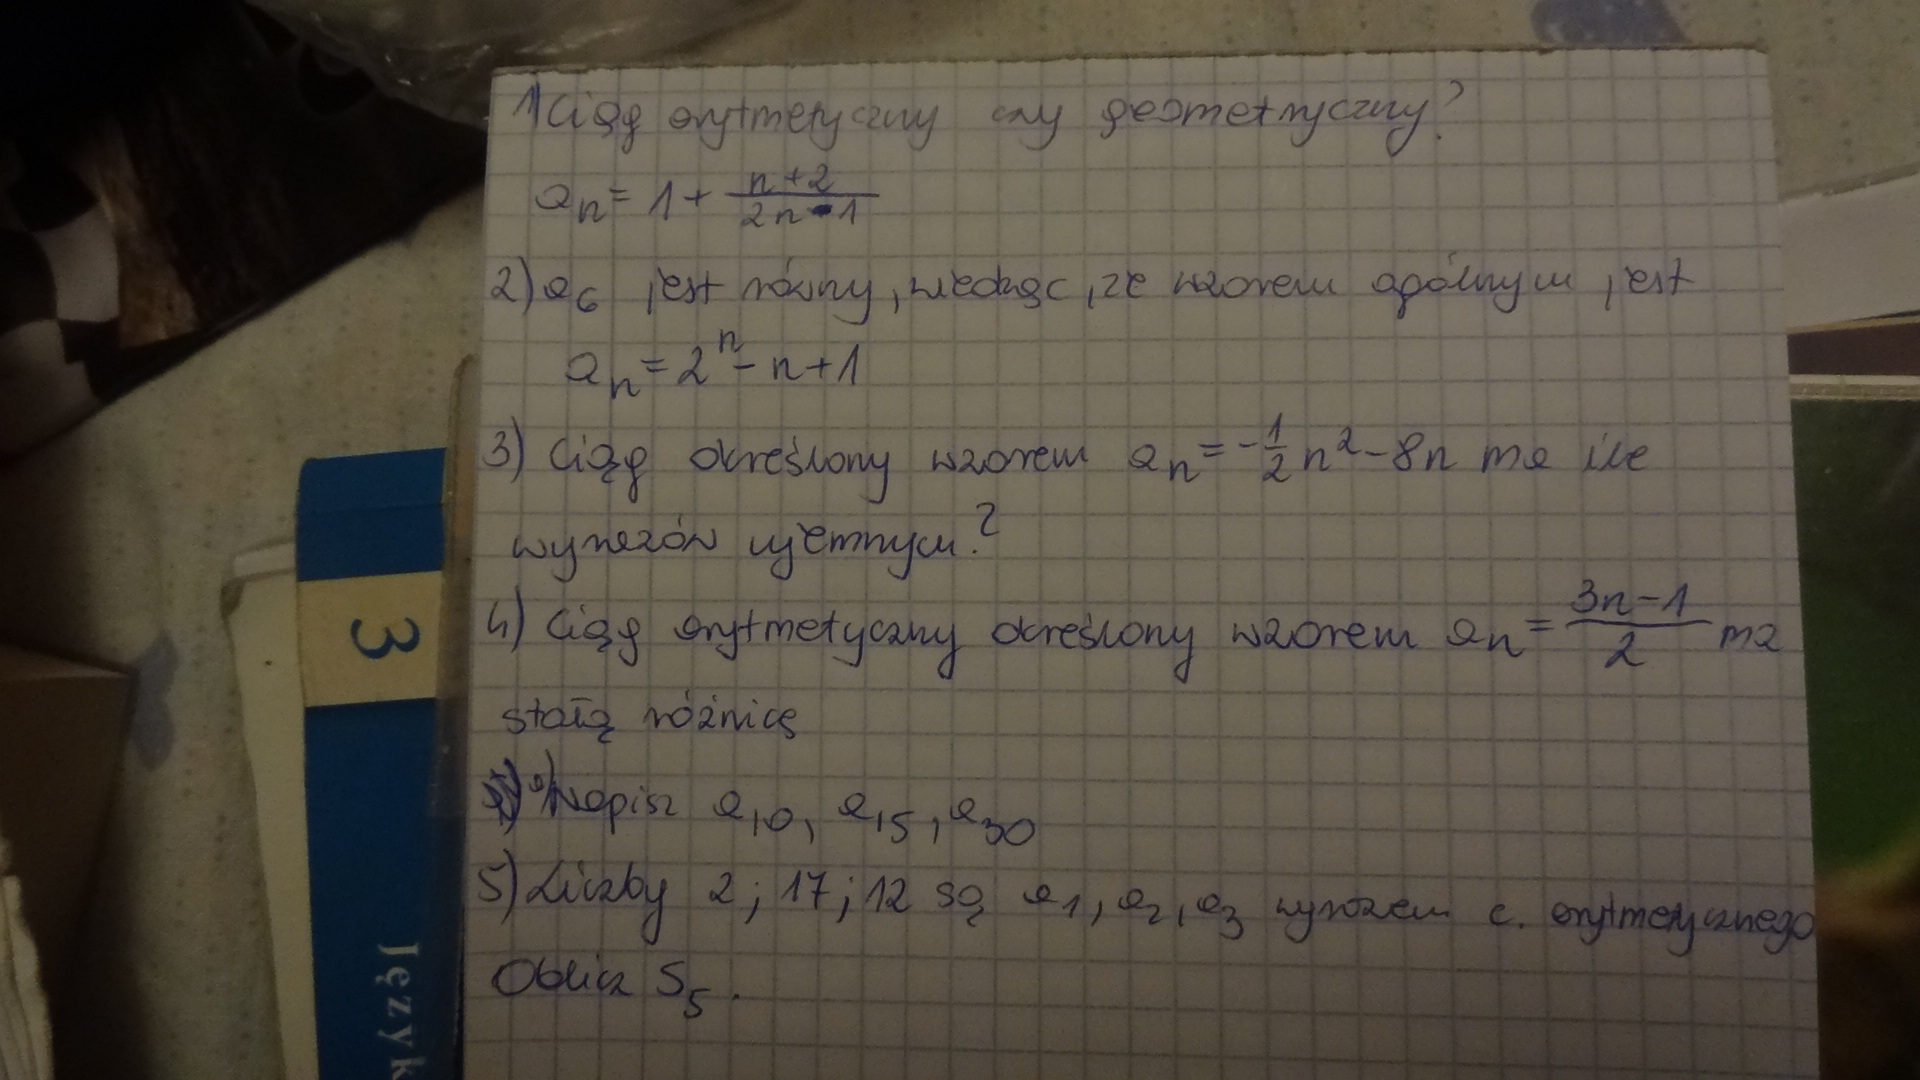 1) Ciąg arytmetyczny czy geometryczny?
an = 1 + (n+2)/(2n-1)
2) a6 jest równy, wiedząc, że wzorem ogólnym jest
an = 2^n - n + 1
3) Ciąg określony wzorem an = -1/2 n² - 8n ma ile
wyrazów ujemnych?
4) Ciąg arytmetyczny określony wzorem an = (3n-1)/2 ma
stałą różnicę
a) Napisz a10, a15, a30
5) Liczby 2; 17; 12 są a1, a2, a3 wyrazem c. arytmetycznego
Oblicz S5.
3
Język